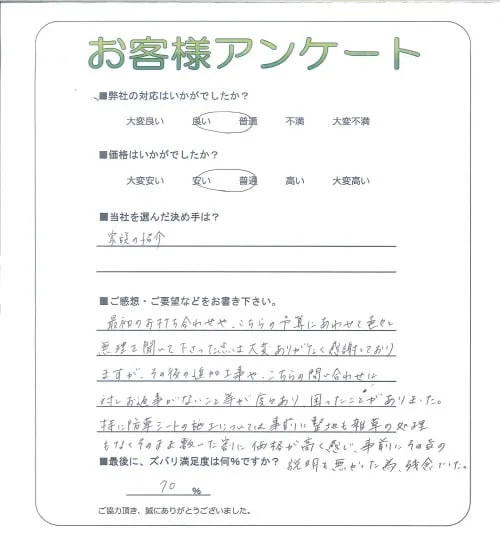 お客様アンケート
■弊社の対応はいかがでしたか？
大変良い 良い 普通 不満 大変不満
■価格はいかがでしたか？
大変安い 安い 普通 高い 大変高い
■当社を選んだ決め手は？
家族の紹介
■ご感想・ご要望などをお書き下さい。
最初のお打ち合わせや、こちらの予算にあわせて色々と
無理を聞いて下さった点は大変ありがたく感謝しており
ますが、その後の追加工事や、こちらの問い合わせに
対しお返事がないこと等が度々あり、困ったことがありました。
特に防草シートの施工については事前に整地も雑草の処理
もなくそのまま敷いた割に価格が高く感じ、事前にその旨の
■最後に、ズバリ満足度は何%ですか？ 説明も無かった為、残念でした。
70 %
ご協力頂き、誠にありがとうございました。